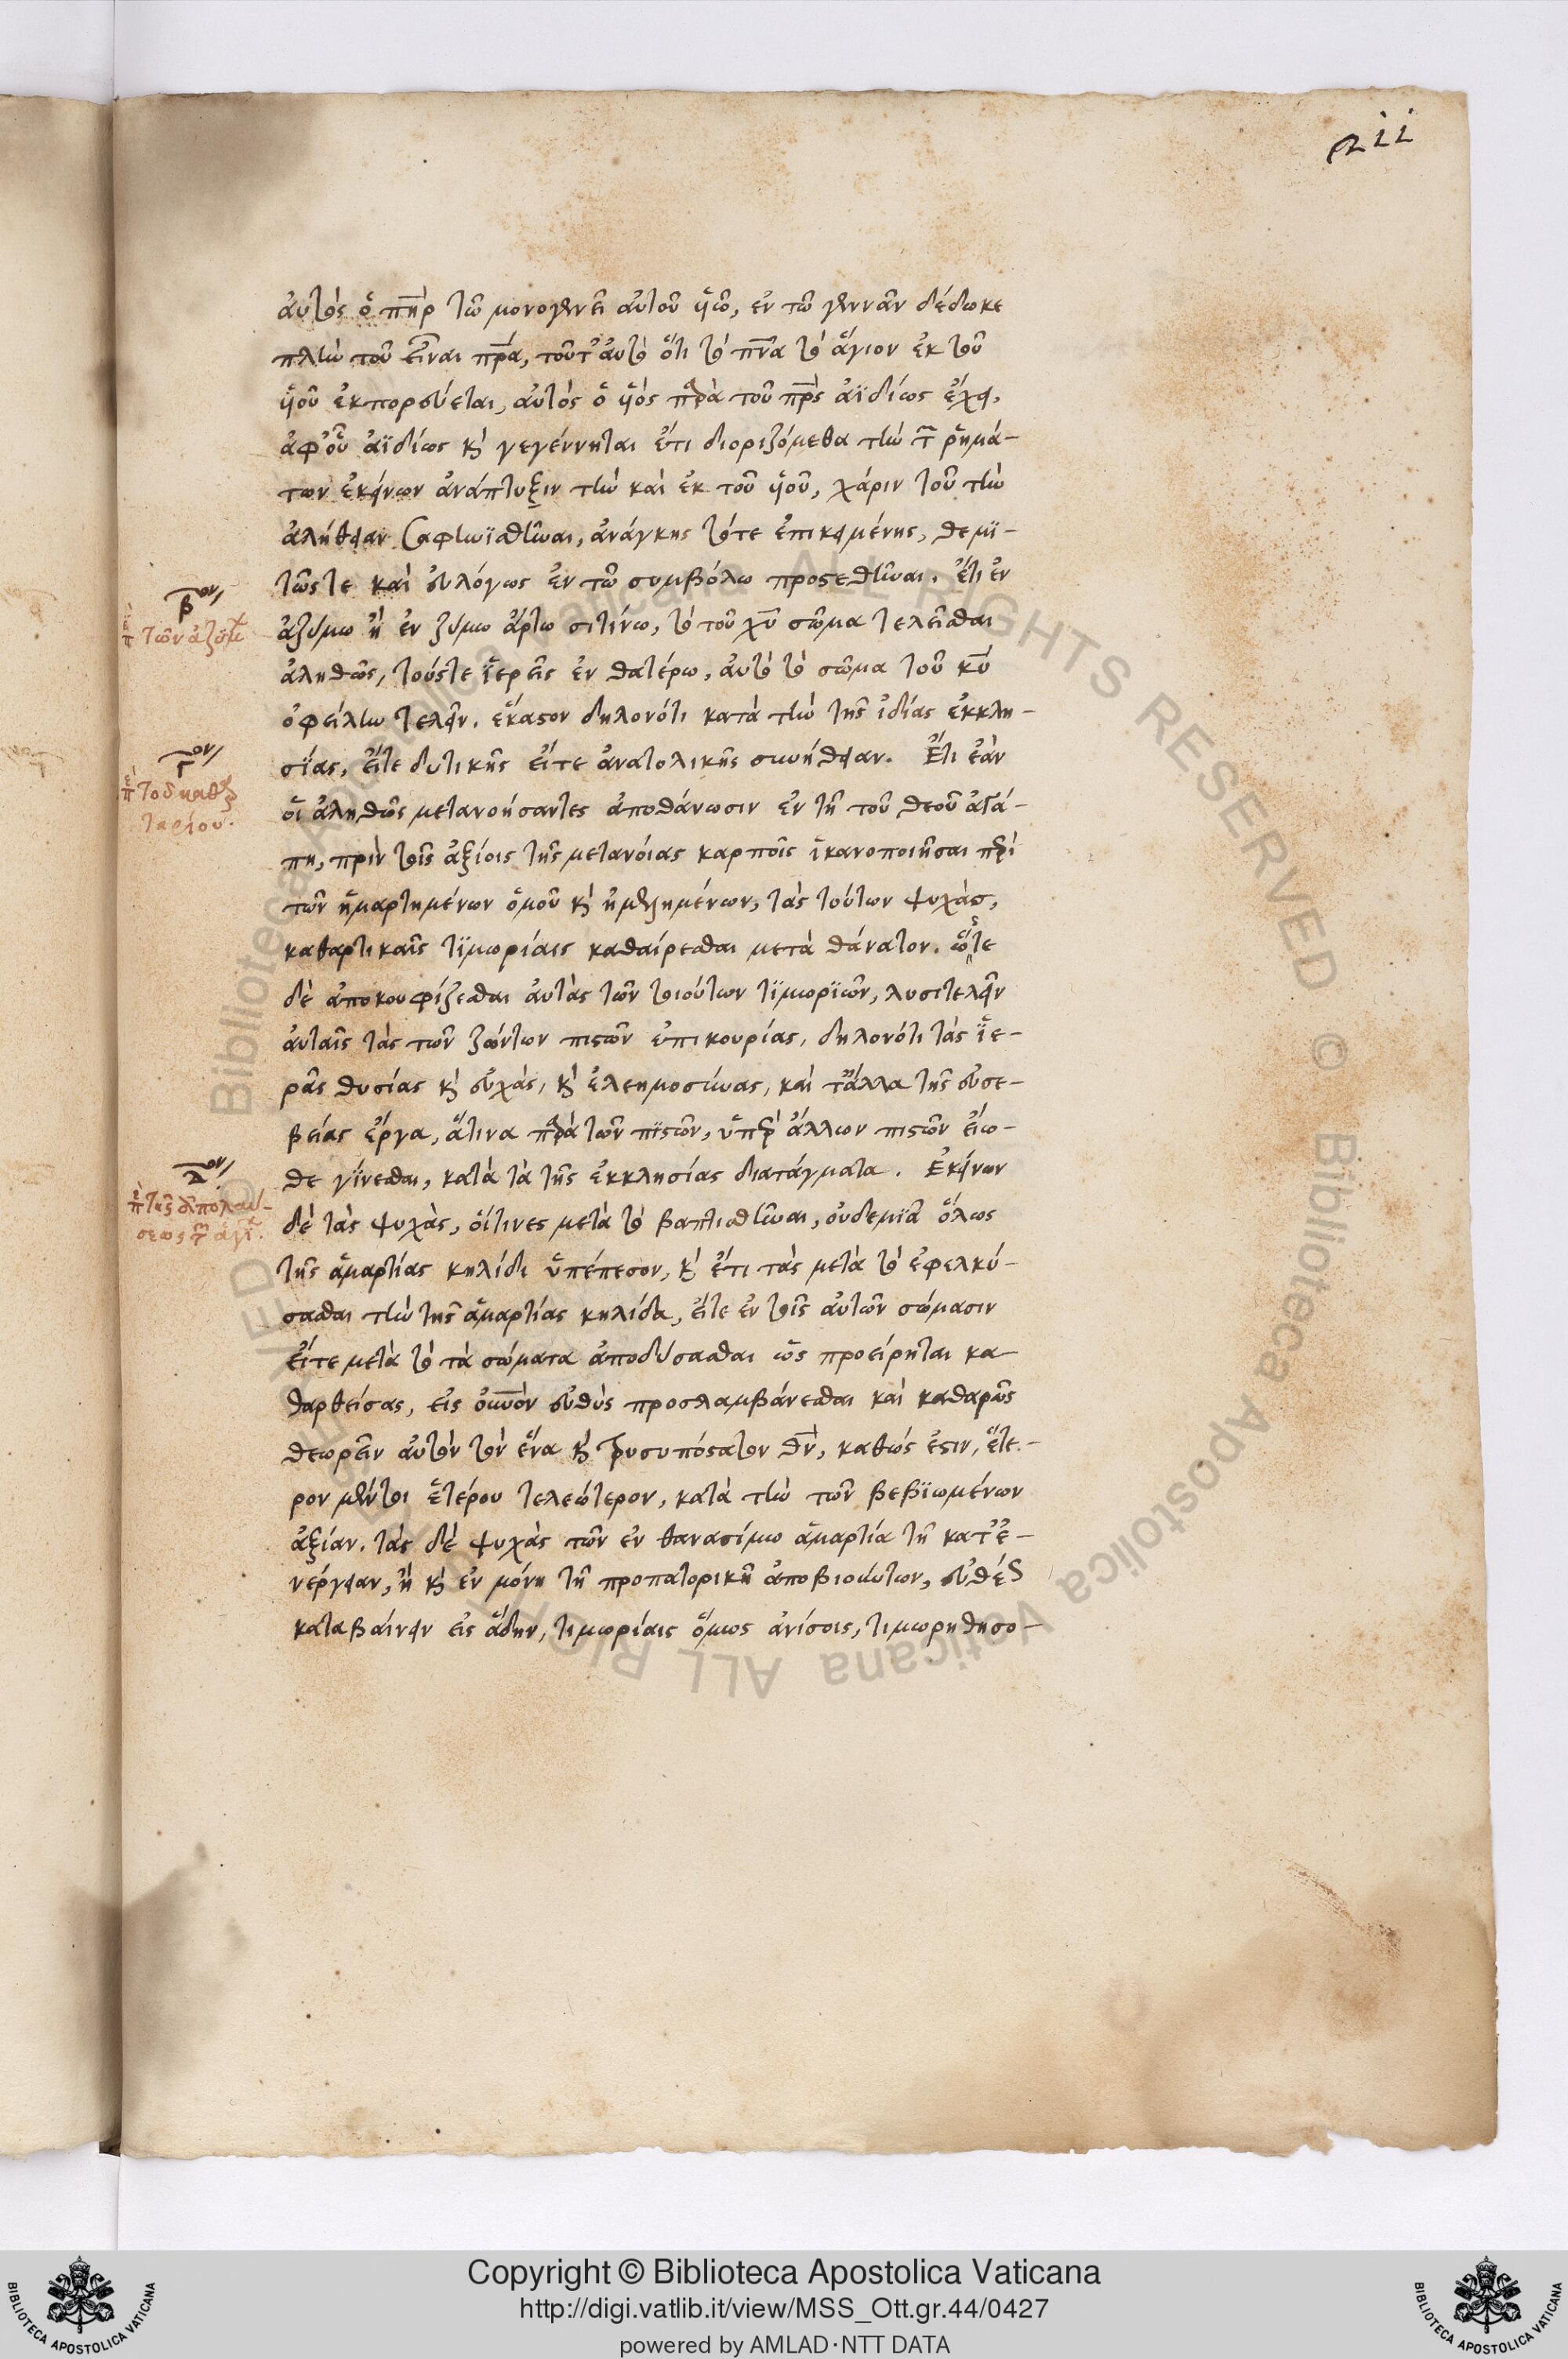 αὐτὸς ὁ πη̅ρ τῶ μονογενεῖ αὐτοῦ υἱῶ, ἐν τῶ γεννᾶν δέδωκε
πλὴν τοῦ εἶναι πρ̅α, τοῦτ' αὐτὸ ὅτι τὸ πν̅α τὸ ἅγιον ἐκ τοῦ
υἱοῦ ἐκπορεύεται, αὐτὸς ὁ υἱὸς παρὰ τοῦ πρ̅ς ἀϊδίως ἔχει,
ἀφ' οὗ ἀϊδίως κ̀ γεγέννηται ἔτι διοριζόμεθα τὴν τ̅ ῥημά-
των ἐκείνων ἀνάπτυξιν τὴν καὶ ἐκ τοῦ υἱοῦ, χάριν τοῦ τὴν
ἀλήθειαν σαφηνϊσθῆναι, ἀνάγκης τότε ἐπικειμένης, θεμϊ-
τῶς τε καὶ εὐλόγως ἐν τῶ συμβόλω προστεθῆναι. ἔτι ἐν
ἀζύμω ἢ ἐν ζύμω ἄρτω σιτίνω, τὸ τοῦ χυ̅ σῶμα τελεῖσθαι
ἀληθῶς, τούς τε ἱερεῖς ἐν θατέρω, αὐτὸ τὸ σῶμα τοῦ κυ̅
ὀφείλειν τελεῖν. ἕκαστον δηλονότι κατὰ τὴν τῆς ἰδίας ἐκκλη-
σίας, εἴτε δυτικῆς εἴτε ἀνατολικῆς συνήθειαν. Ἔτι ἐὰν
οἱ ἀληθῶς μετανοήσαντες ἀποθάνωσιν ἐν τῆ τοῦ θεοῦ ἀγά-
πη, πρὶν τοῖς ἀξίοις τῆς μετανοίας καρποῖς ἱκανοποιῆσαι περὶ
τῶν ἡμαρτημένων ὁμοῦ κ̀ ἠμελημένων, τὰς τούτων ψυχὰς,
καθαρτικαῖς τϊμωρίαις καθαίρεσθαι μετὰ θάνατον. ὥστε
δὲ ἀποκουφίζεσθαι αὐτὰς τῶν τοιούτων τϊμωρϊῶν, λυσιτελεῖν
αὐταῖς τὰς τῶν ζώντων πιστῶν ἐπικουρίας, δηλονότι τὰς ἱε-
ρὰς θυσίας κ̀ εὐχὰς, κ̀ ἐλεημοσύνας, καὶ τἆλλα τῆς εὐσε-
βείας ἔργα, ἅτινα παρὰ τῶν πϊστῶν, ὑπὲρ ἄλλων πιστῶν εἴω-
θε γίνεσθαι, κατὰ τὰ τῆς ἐκκλησίας διατάγματα. Ἐκείνων
δὲ τὰς ψυχὰς, οἵτινες μετὰ τὸ βαπτισθῆναι, οὐδεμιᾶ ὅλως
τῆς ἁμαρτίας κηλίδι ὑπέπεσον, κ̀ ἔτι τὰς μετὰ τὸ ἐφελκύ-
σασθαι τὴν τῆς ἁμαρτίας κηλίδα, εἴτε ἐν τοῖς αὐτῶν σώμασιν
εἴτε μετὰ τὸ τὰ σώματα ἀποδύσασθαι ὡς προείρηται κα-
θαρθείσας, εἰς οὐν̅ὸν εὐθὺς προσλαμβάνεσθαι καὶ καθαρῶς
θεωρεῖν αὐτὸν τὸν ἕνα κ̀ τρισυπόστατον θν̅, καθώς ἐστιν, ἕτε-
ρον μέντοι ἑτέρου τελεώτερον, κατὰ τὴν τῶν βεβϊωμένων
ἀξίαν. τὰς δὲ ψυχὰς τῶν ἐν θανασίμω ἁμαρτία τῆ κατ' ἐ-
νέργειαν, ἢ κ̀ ἐν μόνη τῆ προπατορικῆ ἀποβιούντων, εὐθέως
καταβαίνειν εἰς ἅδην, τιμωρίαις ὅμως ἀνίσοις, τιμωρηθησο-
β ον
ἐπὶ τῶν ἀζύμ
γ ον
ἐπὶ τοῦ καθαρ
τηρίου.
δ ον
ἐπὶ τῆς ἀπολαύ-
σεως τ̅ ἁγί.
Copyright © Biblioteca Apostolica Vaticana
http://digi.vatlib.it/view/MSS_Ott.gr.44/0427
powered by AMLAD·NTT DATA
BIBLIOTECA APOSTOLICA VATICANA
BIBLIOTECA APOSTOLICA VATICANA